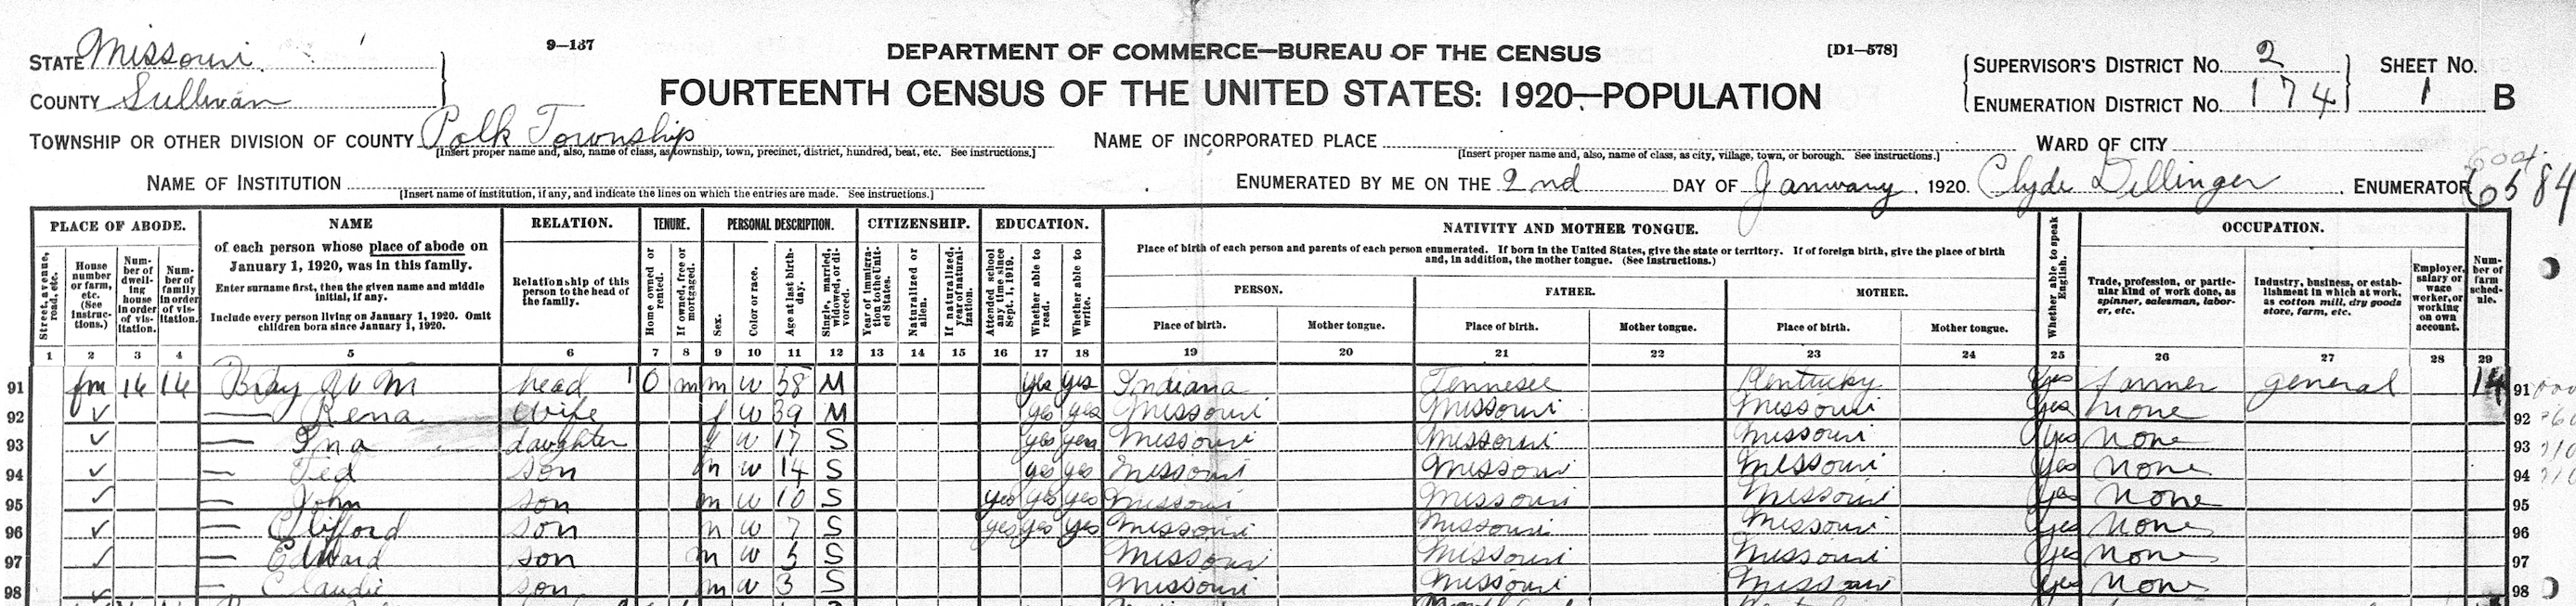 9—137
DEPARTMENT OF COMMERCE—BUREAU OF THE CENSUS
[D1—578]
STATE Missouri
COUNTY Sullivan
FOURTEENTH CENSUS OF THE UNITED STATES: 1920—POPULATION
SUPERVISOR'S DISTRICT No. 2 SHEET No.
ENUMERATION DISTRICT No. 174 1 B
TOWNSHIP OR OTHER DIVISION OF COUNTY Polk Township NAME OF INCORPORATED PLACE WARD OF CITY
[Insert proper name and, also, name of class, as township, town, precinct, district, hundred, beat, etc. See instructions.] [Insert proper name and, also, name of class, as city, village, town, or borough. See instructions.]
NAME OF INSTITUTION ENUMERATED BY ME ON THE 2nd DAY OF January, 1920. Clyde Dellinger, ENUMERATOR 6584
[Insert name of institution, if any, and indicate the lines on which the entries are made. See instructions.]
PLACE OF ABODE.
Street, avenue, road, etc.
House number or farm, etc. (See instructions.)
Number of dwelling house in order of visitation.
Number of family in order of visitation.
NAME
of each person whose place of abode on
January 1, 1920, was in this family.
Enter surname first, then the given name and middle
initial, if any.
Include every person living on January 1, 1920. Omit
children born since January 1, 1920.
RELATION.
Relationship of this
person to the head of
the family.
TENURE.
Home owned or rented.
If owned, free or mortgaged.
PERSONAL DESCRIPTION.
Sex.
Color or race.
Age at last birthday.
Single, married, widowed, or divorced.
CITIZENSHIP.
Year of immigration to the United States.
Naturalized or alien.
If naturalized, year of naturalization.
EDUCATION.
Attended school any time since Sept. 1, 1919.
Whether able to read.
Whether able to write.
NATIVITY AND MOTHER TONGUE.
Place of birth of each person and parents of each person enumerated. If born in the United States, give the state or territory. If of foreign birth, give the place of birth
and, in addition, the mother tongue. (See instructions.)
PERSON. FATHER. MOTHER.
Place of birth. Mother tongue. Place of birth. Mother tongue. Place of birth. Mother tongue.
Whether able to speak English.
OCCUPATION.
Trade, profession, or particular kind of work done, as spinner, salesman, laborer, etc.
Industry, business, or establishment in which at work, as cotton mill, dry goods store, farm, etc.
Employer, salary or wage worker, or working on own account.
Number of farm schedule.
1 2 3 4 5 6 7 8 9 10 11 12 13 14 15 16 17 18 19 20 21 22 23 24 25 26 27 28 29
91 fm 14 14 Bray W M head 1 O m m w 58 M yes yes Indiana Tennesee Kentucky Yes farmer general 14 91
92 ✓ — Rena Wife f w 39 M yes yes Missouri Missouri Missouri Yes None 92
93 ✓ — Ina daughter f w 17 S yes yes Missouri Missouri Missouri yes None 93
94 ✓ — Ted son m w 14 S yes yes Missouri Missouri Missouri yes None 94
95 ✓ — John son m w 10 S yes yes yes Missouri Missouri Missouri yes None 95
96 ✓ — Clifford son m w 7 S yes yes yes Missouri Missouri Missouri yes None 96
97 ✓ — Edward son m w 5 S Missouri Missouri Missouri yes None 97
98 ✓ — Claudie son m w 3 S Missouri Missouri Missouri yes None 98